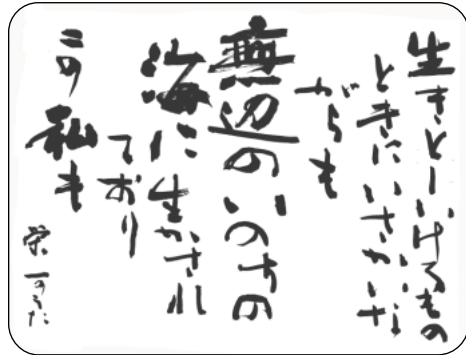 生きとしいけるもの
ときにいさかいな
がらも
無辺のいのちの
海に生かされ
ており
この私も
栄一のうた